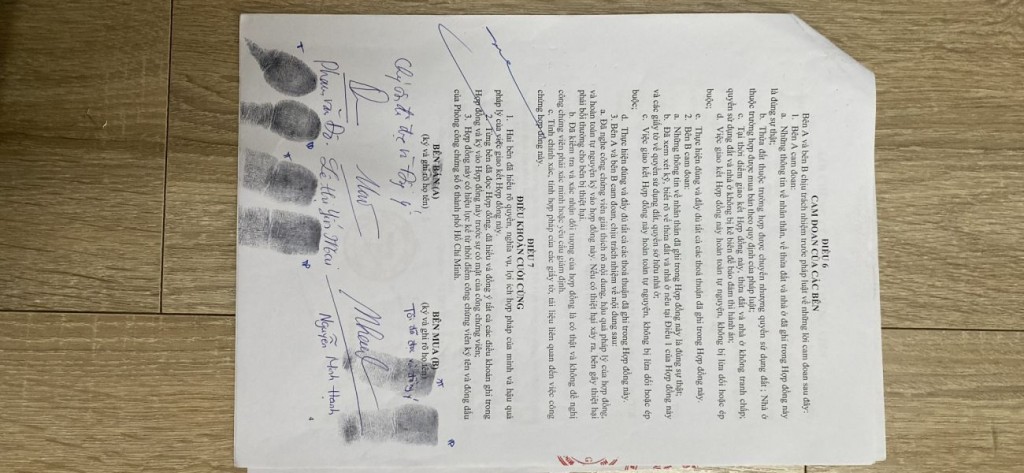 ĐIỀU 6
CAM ĐOAN CỦA CÁC BÊN
Bên A và bên B chịu trách nhiệm trước pháp luật về những lời cam đoan sau đây:
1. Bên A cam đoan:
a. Những thông tin về nhân thân, về thửa đất và nhà ở đã ghi trong Hợp đồng này
là đúng sự thật;
b. Thửa đất thuộc trường hợp được chuyển nhượng quyền sử dụng đất ; Nhà ở
thuộc trường hợp được mua bán theo quy định của pháp luật;
c. Tại thời điểm giao kết Hợp đồng này, thửa đất và nhà ở không tranh chấp,
quyền sử dụng đất và nhà ở không bị kê biên để bảo đảm thi hành án;
d. Việc giao kết Hợp đồng này hoàn toàn tự nguyện, không bị lừa dối hoặc ép
buộc;
e. Thực hiện đúng và đầy đủ tất cả các thoả thuận đã ghi trong Hợp đồng này.
2. Bên B cam đoan:
a. Những thông tin về nhân thân đã ghi trong Hợp đồng này là đúng sự thật;
b. Đã xem xét kỹ, biết rõ về thửa đất và nhà ở nêu tại Điều 1 của Hợp đồng này
và các giấy tờ về quyền sử dụng đất, quyền sở hữu nhà ở;
c. Việc giao kết Hợp đồng này hoàn toàn tự nguyện, không bị lừa dối hoặc ép
buộc;
d. Thực hiện đúng và đầy đủ tất cả các thoả thuận đã ghi trong Hợp đồng này.
3. Bên A và Bên B cam đoan, chịu trách nhiệm về nội dung sau:
a. Đã nghe công chứng viên giải thích rõ nội dung, hậu quả pháp lý của hợp đồng,
và hoàn toàn tự nguyện ký vào hợp đồng này. Nếu có thiệt hại xảy ra, bên gây thiệt hại
phải bồi thường cho bên bị thiệt hại.
b. Đã kiểm tra và xác nhận đối tượng của hợp đồng là có thật và không đề nghị
công chứng viên phải xác minh hoặc yêu cầu giám định.
c. Tính chính xác, tính hợp pháp của các giấy tờ, tài liệu liên quan đến việc công
chứng hợp đồng này.
ĐIỀU 7
ĐIỀU KHOẢN CUỐI CÙNG
1. Hai bên đã hiểu rõ quyền, nghĩa vụ, lợi ích hợp pháp của mình và hậu quả
pháp lý của việc giao kết Hợp đồng này.
2. Từng bên đã đọc Hợp đồng, đã hiểu và đồng ý tất cả các điều khoản ghi trong
Hợp đồng và ký vào Hợp đồng này trước sự có mặt của công chứng viên;
3. Hợp đồng này có hiệu lực kể từ thời điểm công chứng viên ký tên và đóng dấu
của Phòng công chứng số 6 thành phố Hồ Chí Minh.
BÊN BÁN (A) BÊN MUA (B)
(ký và ghi rõ họ tên) (ký và ghi rõ họ tên)
Nguyễn Minh Hạnh
4